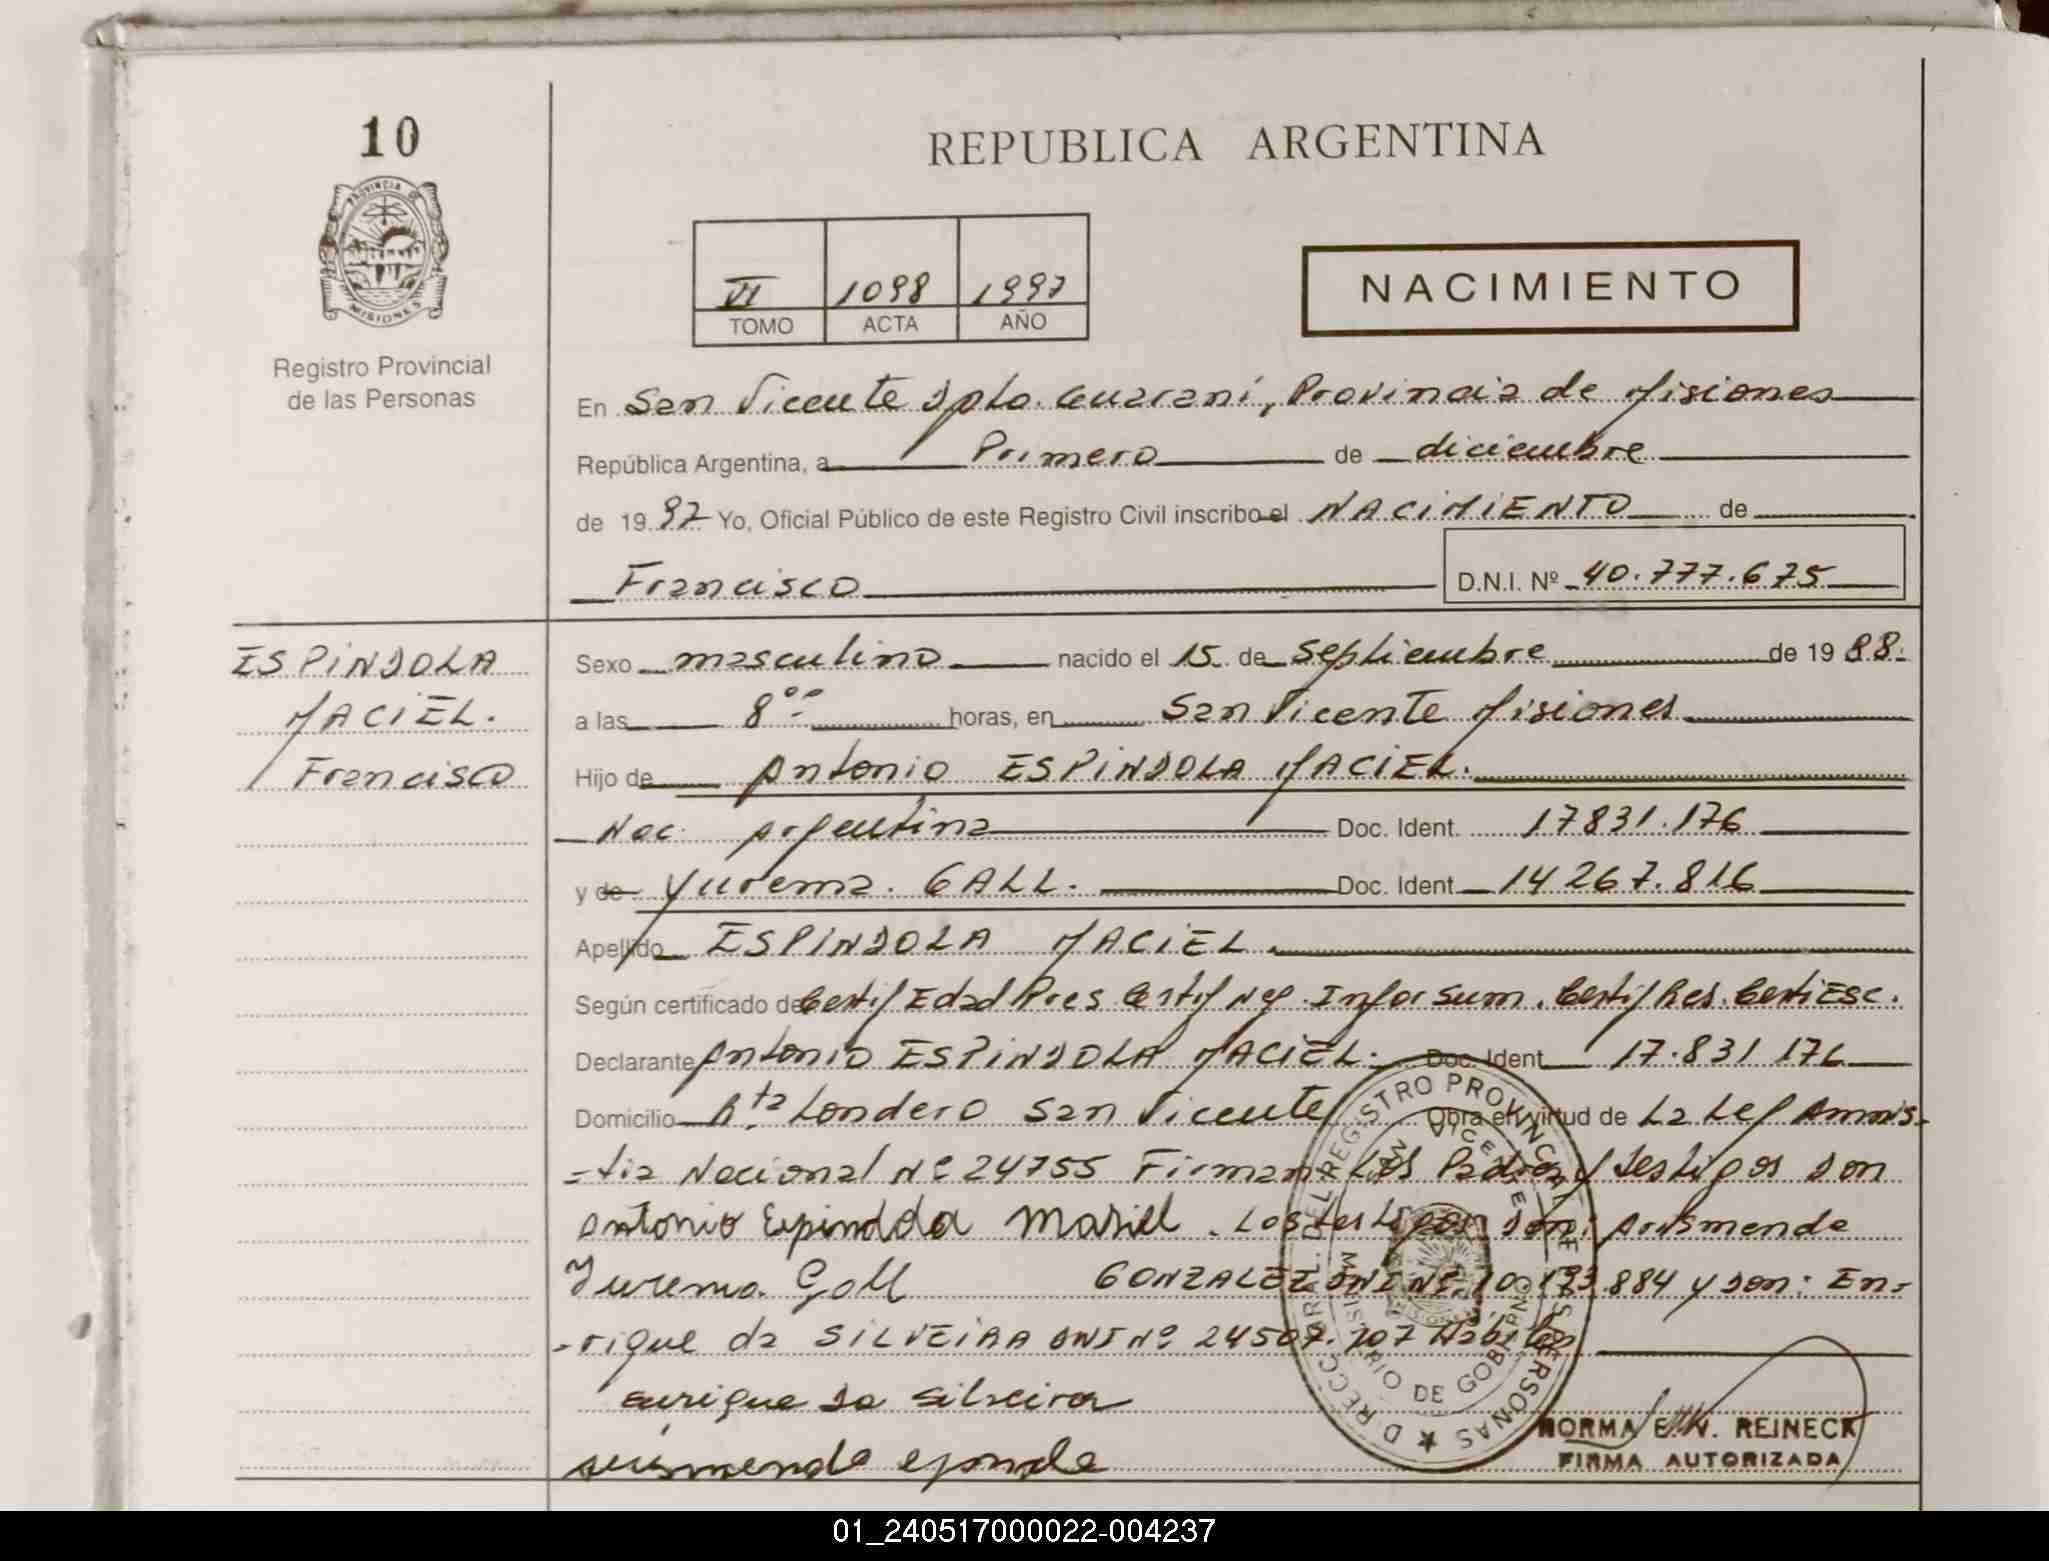 10
REPUBLICA ARGENTINA
PROVINCIA
MISIONES
Registro Provincial
de las Personas
VI 1098 1997
TOMO ACTA AÑO
NACIMIENTO
En San Vicente Dpto. Guaraní, Provincia de Misiones
República Argentina, a Primero de diciembre
de 1997 Yo, Oficial Público de este Registro Civil inscribo el NACIMIENTO de
Francisco D.N.I. Nº 40.777.675
ESPINDOLA
MACIEL.
Francisco
Sexo masculino nacido el 15 de Septiembre de 1988.
a las 8ºº horas, en San Vicente Misiones
Hijo de Antonio ESPINDOLA MACIEL.
Nac. Argentina Doc. Ident. 17831.176
y de Yurema. GALL. Doc. Ident 14267.816
Apellido ESPINDOLA MACIEL.
Según certificado de Certif Edad Pres Certif Neg. Infor Sum. Certif Res. Certi Esc.
Declarante Antonio ESPINDOLA MACIEL. Doc. Ident 17.831 176
Domicilio Rta Londero San Vicente Obra en virtud de La Ley Amnis-
-tia Nacional Nº 24755 Firman Los Padres y testigos Don
Antonio Espindola Masiel. Los testigos son:
Yurema Gall GONZALEZ DNI Nº 10.193.884 y Don: En-
-rique da SILVEIRA DNI Nº 24507.207 Habiles
Enrique da Silveira
DIRECC. GRAL. DEL REGISTRO PROVINCIAL DE LAS PERSONAS
SAN VICENTE
MINISTERIO DE GOBIERNO
NORMA E. W. REINECK
FIRMA AUTORIZADA
01_240517000022-004237